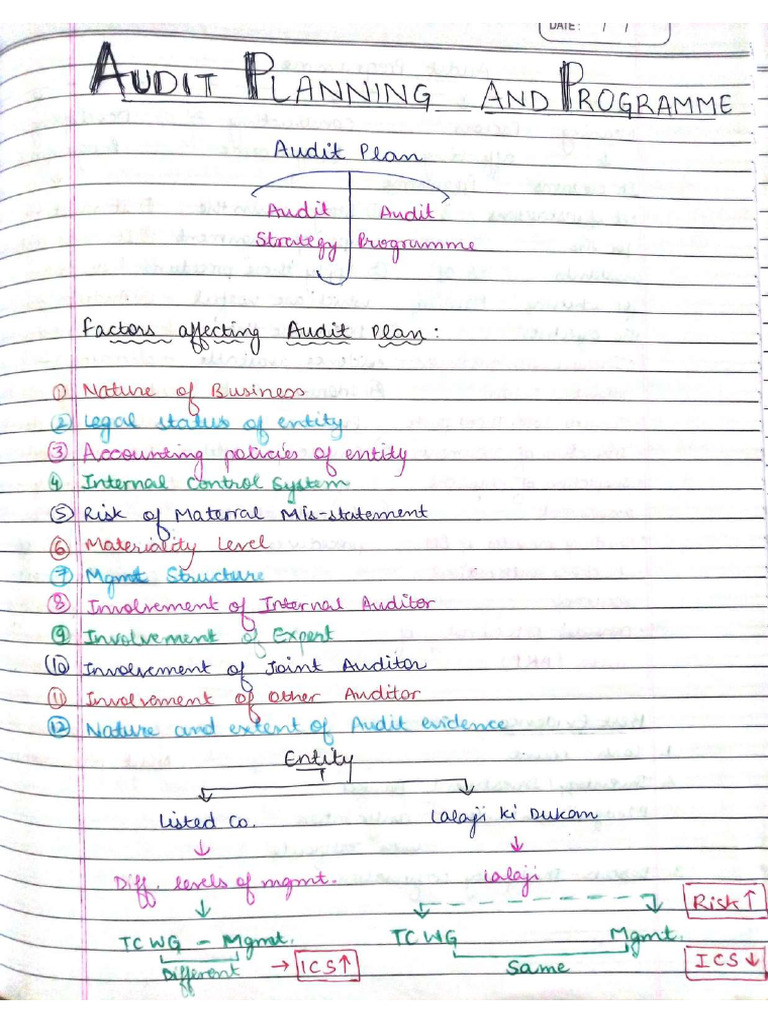 DATE: / /
AUDIT PLANNING AND PROGRAMME
Audit Plan
Audit Audit
Strategy Programme
Factors affecting Audit Plan:
① Nature of Business
② Legal status of entity
③ Accounting policies of entity
④ Internal Control System
⑤ Risk of Material Mis-statement
⑥ Materiality Level
⑦ Mgmt Structure
⑧ Involvement of Internal Auditor
⑨ Involvement of Expert
⑩ Involvement of Joint Auditor
⑪ Involvement of other Auditor
⑫ Nature and extent of Audit evidence
Entity
Listed Co. Lalaji ki Dukan
↓ ↓
Diff. levels of mgmt. Lalaji
↓ Risk ↑
TCWG - Mgmt. TCWG Mgmt.
Different → ICS ↑ Same ICS ↓